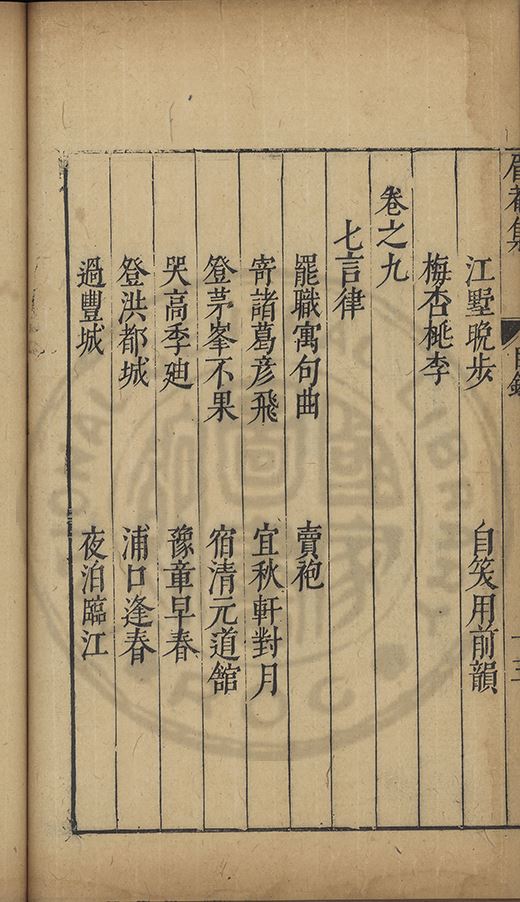 眉菴集
目錄
十三
江墅晚步　自笑用前韻
梅杏桃李
卷之九
七言律
罷職寓句曲　賣袍
寄諸葛彦飛　宜秋軒對月
登茅峯不果　宿清元道舘
哭高季廸　豫章早春
登洪都城　浦口逢春
過豐城　夜泊臨江